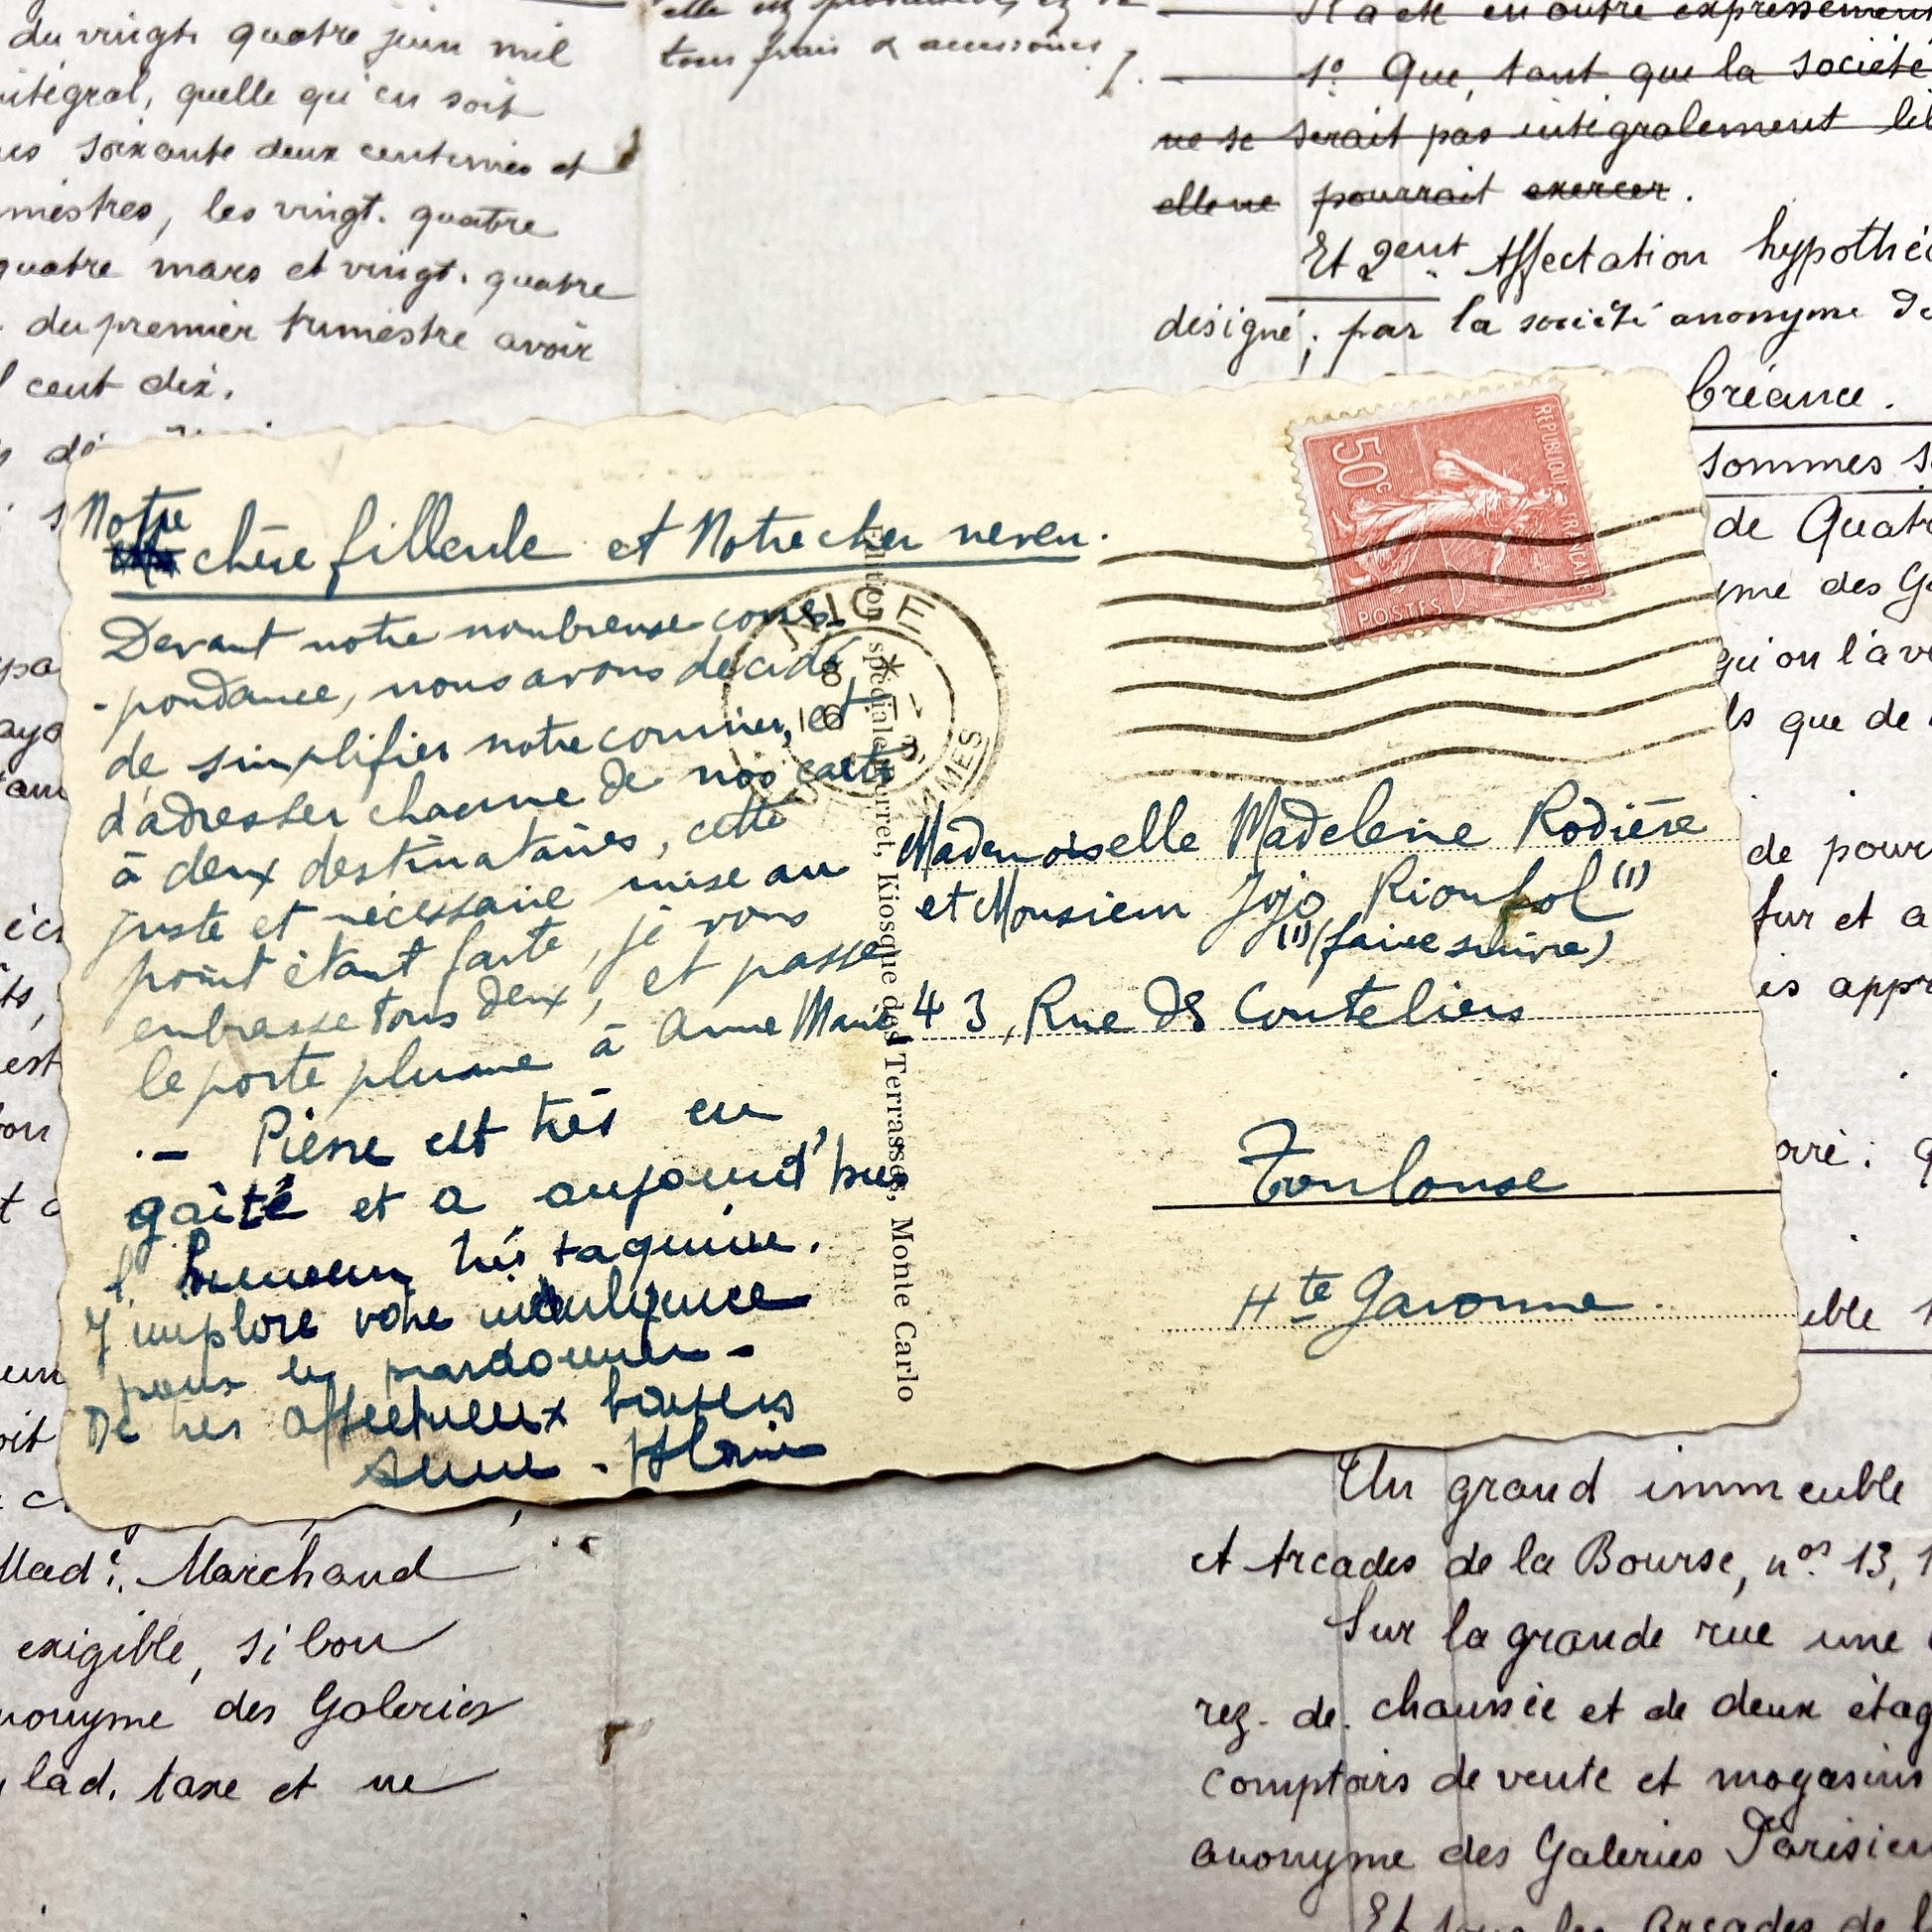 du vingt quatre juin mil
intégral, quelle qu'en soit
soixante deux centimes et
mestres, les vingt. quatre
quatre mars et vingt. quatre
du premier trimestre avoir
cent dix.
tous frais & accessoires
Il a été en outre expressément
1º Que, tant que la société
ne se serait pas intégralement lib
elle ne pourrait exercer.
Et 2ent Affectation hypothéc
désigné; par la société anonyme
Créance.
sommes s
de Quatr
me des Ga
qu'on l'av
ls que de
de pour
fur et a
is appr
ble 1
Notre
chère filleule et Notre cher neveu.
Devant notre nombreuse corres-
-pondance, nous avons décidé
de simplifier notre courrier, et
d'adresser chacune de nos cartes
à deux destinataires, cette
juste et nécessaire mise au
point étant faite, je vous
embrasse tous deux, et passe
le porte plume à Anne Marie
.- Pierre est très en
gaîté et a aujourd'hui
l'humeur très taquine.
J'implore votre indulgence
pour lui pardonner -
De très affectueux baisers
Anne-Marie
Edition spéciale Perret, Kiosque des Terrasses, Monte Carlo
NICE
MMES
50c
REPUBLIQUE FRANCAISE
POSTES
Mademoiselle Madeleine Rodière
et Monsieur Jojo Rioufol (1)
(1) (faire suivre)
43, Rue des Couteliers
Toulouse
Hte Garonne.
Mad? Marchand
exigible, si bon
nonyme des Galeries
lad. taxe et ne
Un grand immeuble
et Arcades de la Bourse, nos 13, 1
Sur la grande rue une
rez-de-chaussée et de deux étag
comptoirs de vente et magasins
anonyme des Galeries Parisien